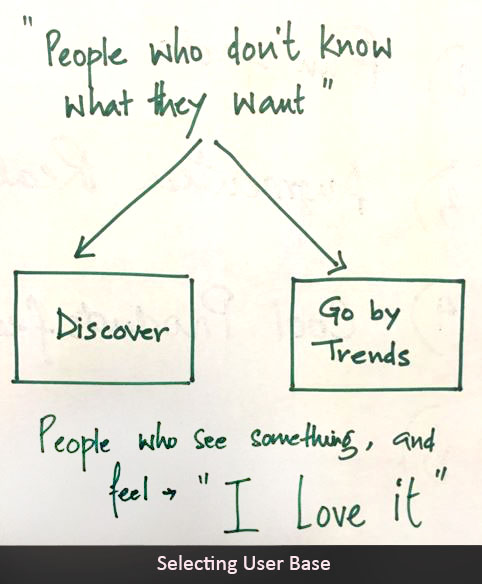 "People who don't know
what they want"
Discover
Go by
Trends
People who see something, and
feel → "I Love it"
Selecting User Base